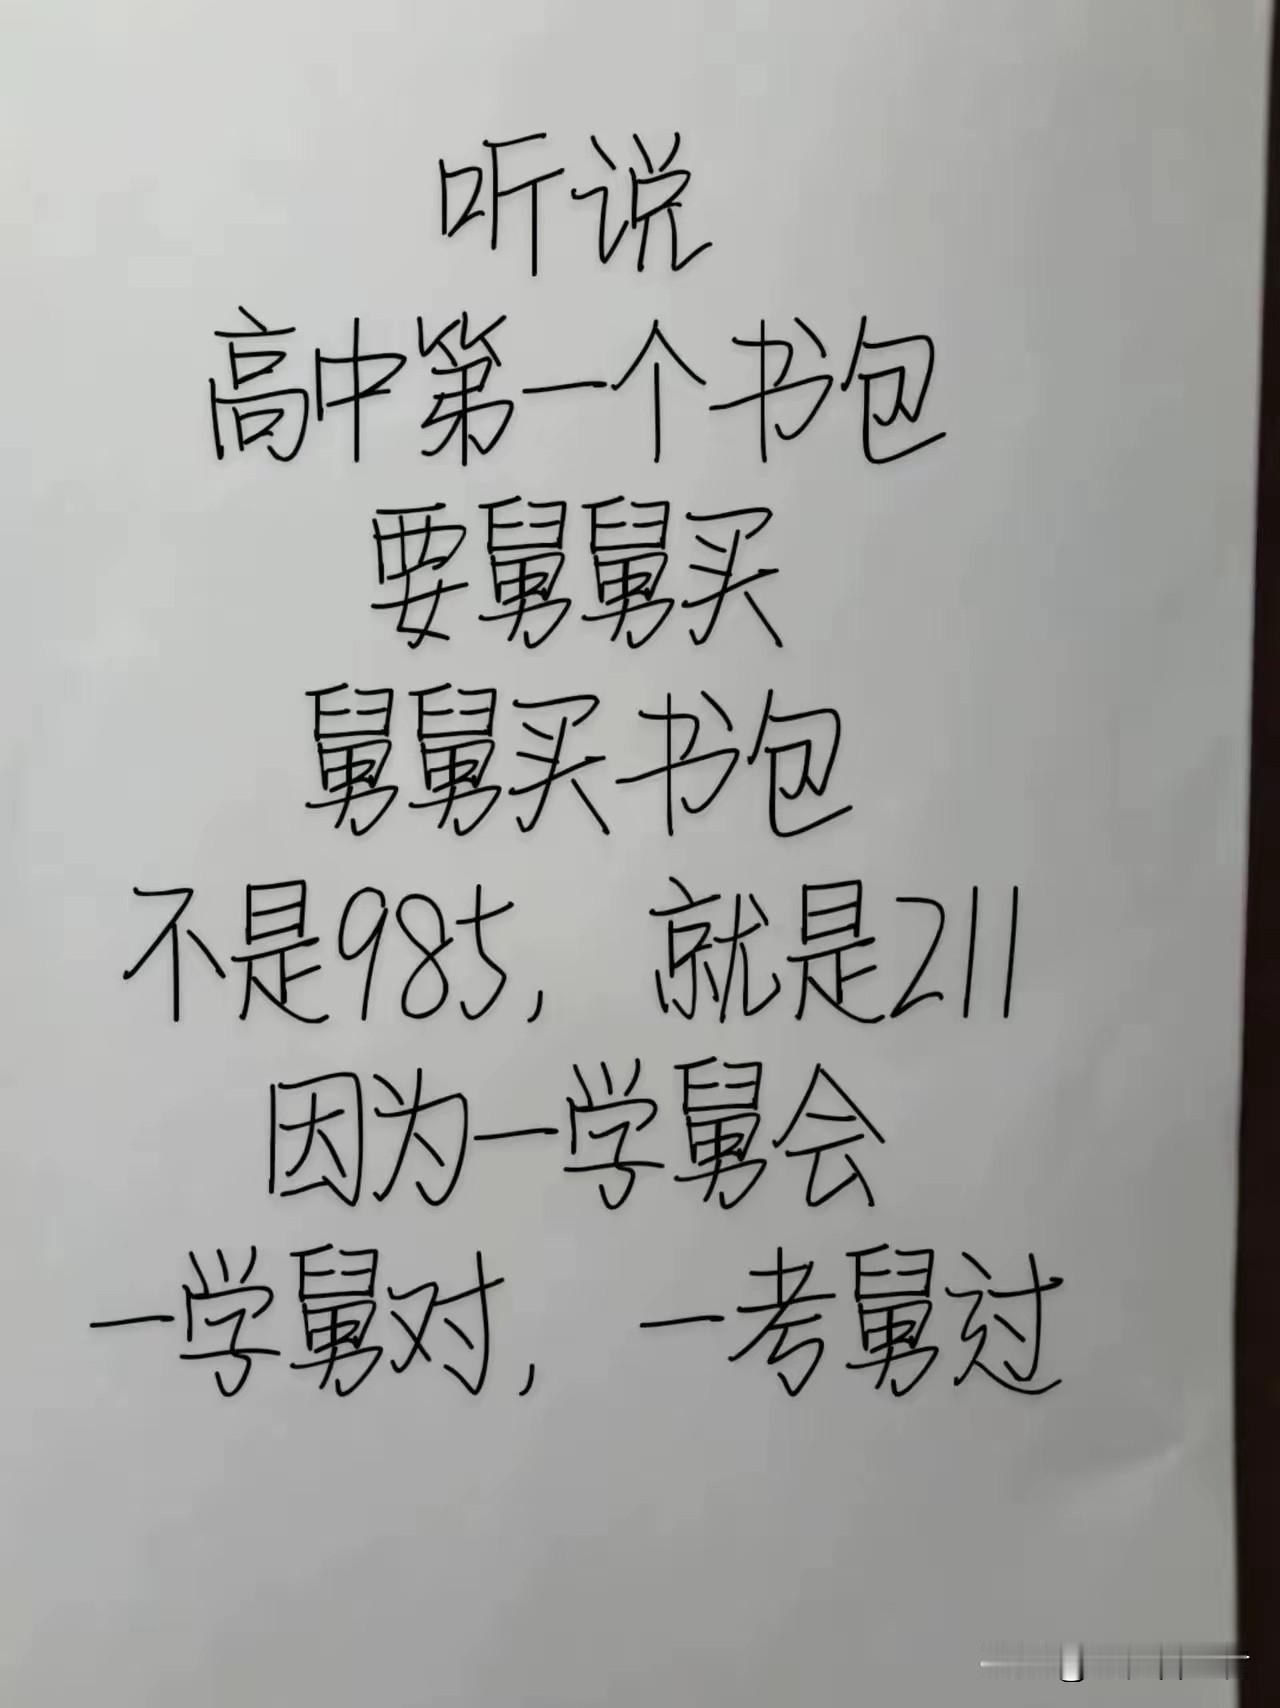 听说
高中第一个书包
要舅舅买
舅舅买书包
不是985，就是211
因为一学舅会
一学舅对，一考舅过